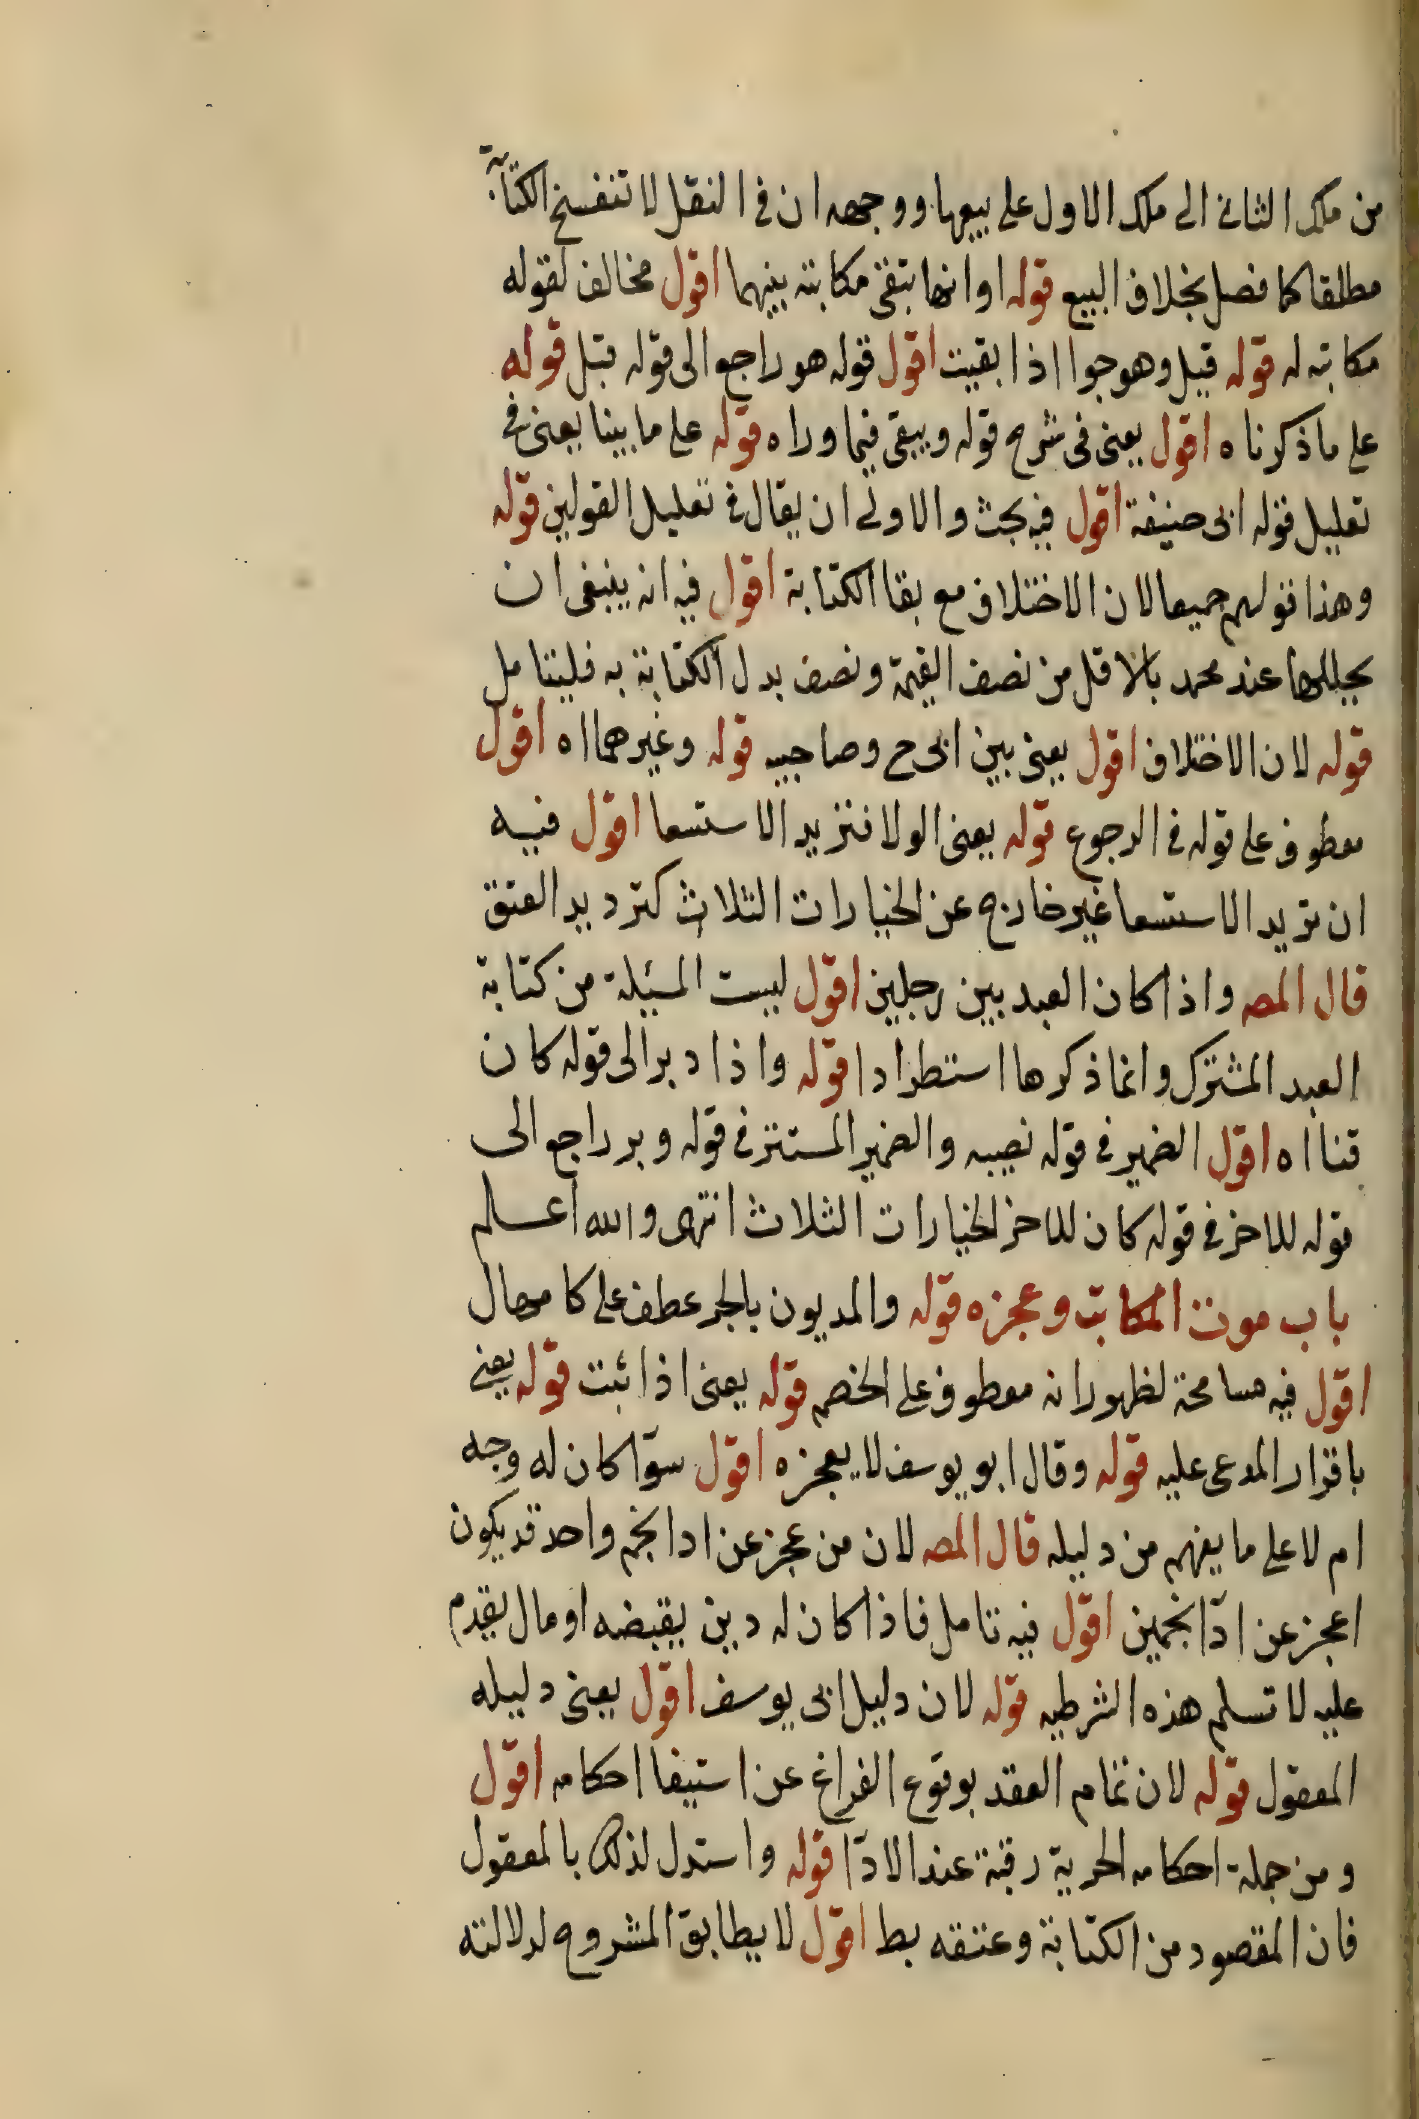 من ملك الثانى الى ملك الاول على بيعها ووجهه ان فى النقل لا تنفسخ الكتابة
مطلقا كما فصل بخلاف البيع قوله او انها بتقى مكاتبته بينهما اقول مخالف لقوله
مكاتبته له قوله قيل وهو جواا اذا بقيت اقول قوله هو راجع الى قوله قبل قوله
على ما ذكرناه اقول يعنى فى شرح قوله ويبقى فيما وراه قوله على ما بينا يعنى فى
تعليل قوله ابى حنيفة اقول فيه بحث والاولى ان يقال فى تعليل القولين قوله
وهذا قولهم جميعا لان الاختلاف مع بقا الكتابة اقول فيه انه ينبغى ان
عند محمد بالاقل من نصف القيمة ونصف بدل الكتابة به فليتامل
قوله لان الاختلاف اقول يعنى بين ابى ح وصاحبيه قوله وغيرهما اه اقول
معطوف على قوله فى الرجوع قوله يعنى الولا فتزيد الاستسعا اقول فيه
ان تزيد الاستسعا غير خارج عن الخيارات الثلاث كترديد العتق
قال المصه واذا كان العبد بين رجلين اقول ليست المسئلة من كتابة
العبد المشترك وانما ذكرها استطرادا قوله واذا دبر الى قوله كان
قنا اه اقول الضمير فى قوله نصيبه والضمير المستتر فى قوله وبر راجع الى
قوله للاخر فى قوله كان للاخر الخيارات الثلاث انتهى والله اعلم
باب موت المكاتب وعجزه قوله والمديون بالجر عطف على كامهال
اقول فيه مسامحة لظهور انه معطوف على الخصم قوله يعنى اذا ثبت قوله يعنى
باقرار المدعى عليه قوله وقال ابو يوسف لا يعجزه اقول سوآ كان له وجه
ام لا على ما يفهم من دليله قال المصه لان من عجز عن ادا نجم واحد قد يكون
اعجز عن ادآ نجمين اقول فيه تامل فاذا كان له دين يقبضه او مال يقدم
عليه لا تسلم هذه الشرطيه قوله لان دليل ابى يوسف اقول يعنى دليله
المعقول قوله لان تمام العقد بوقوع الفراغ عن استيفا احكامه اقول
ومن جملة احكامه الحرية رقبة عند الادآ قوله واستدل لذلك بالمعقول
فان المقصود من الكتابة وعتقه بط اقول لا يطابق المشروح لدلالته